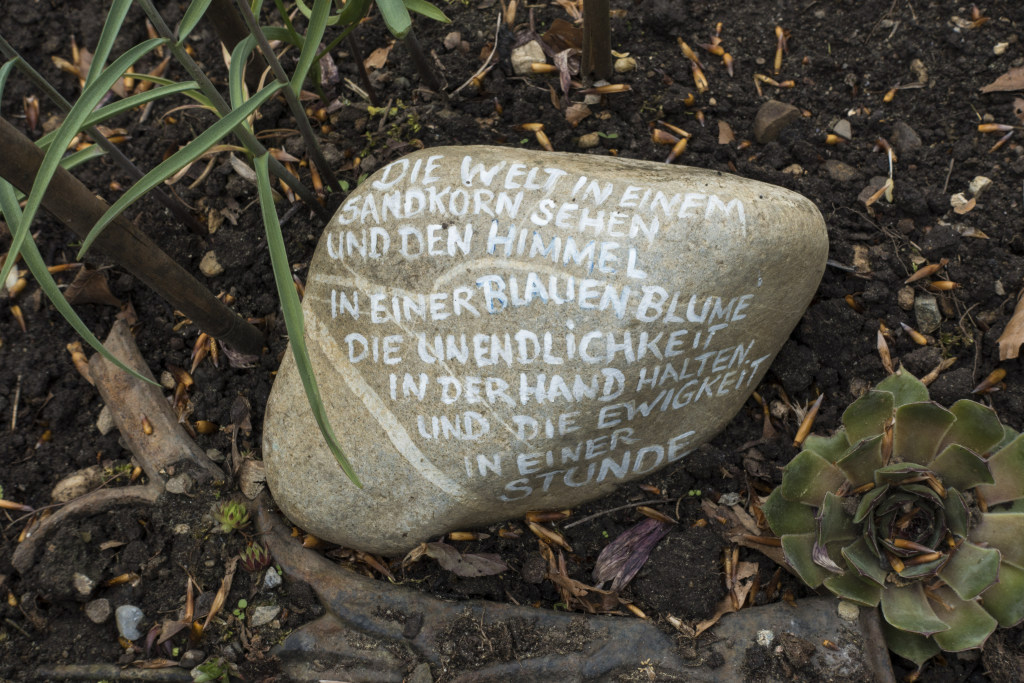 DIE WELT IN EINEM
SANDKORN SEHEN
UND DEN HIMMEL
IN EINER BLAUEN BLUME
DIE UNENDLICHKEIT
IN DER HAND HALTEN
UND DIE EWIGKEIT
IN EINER
STUNDE